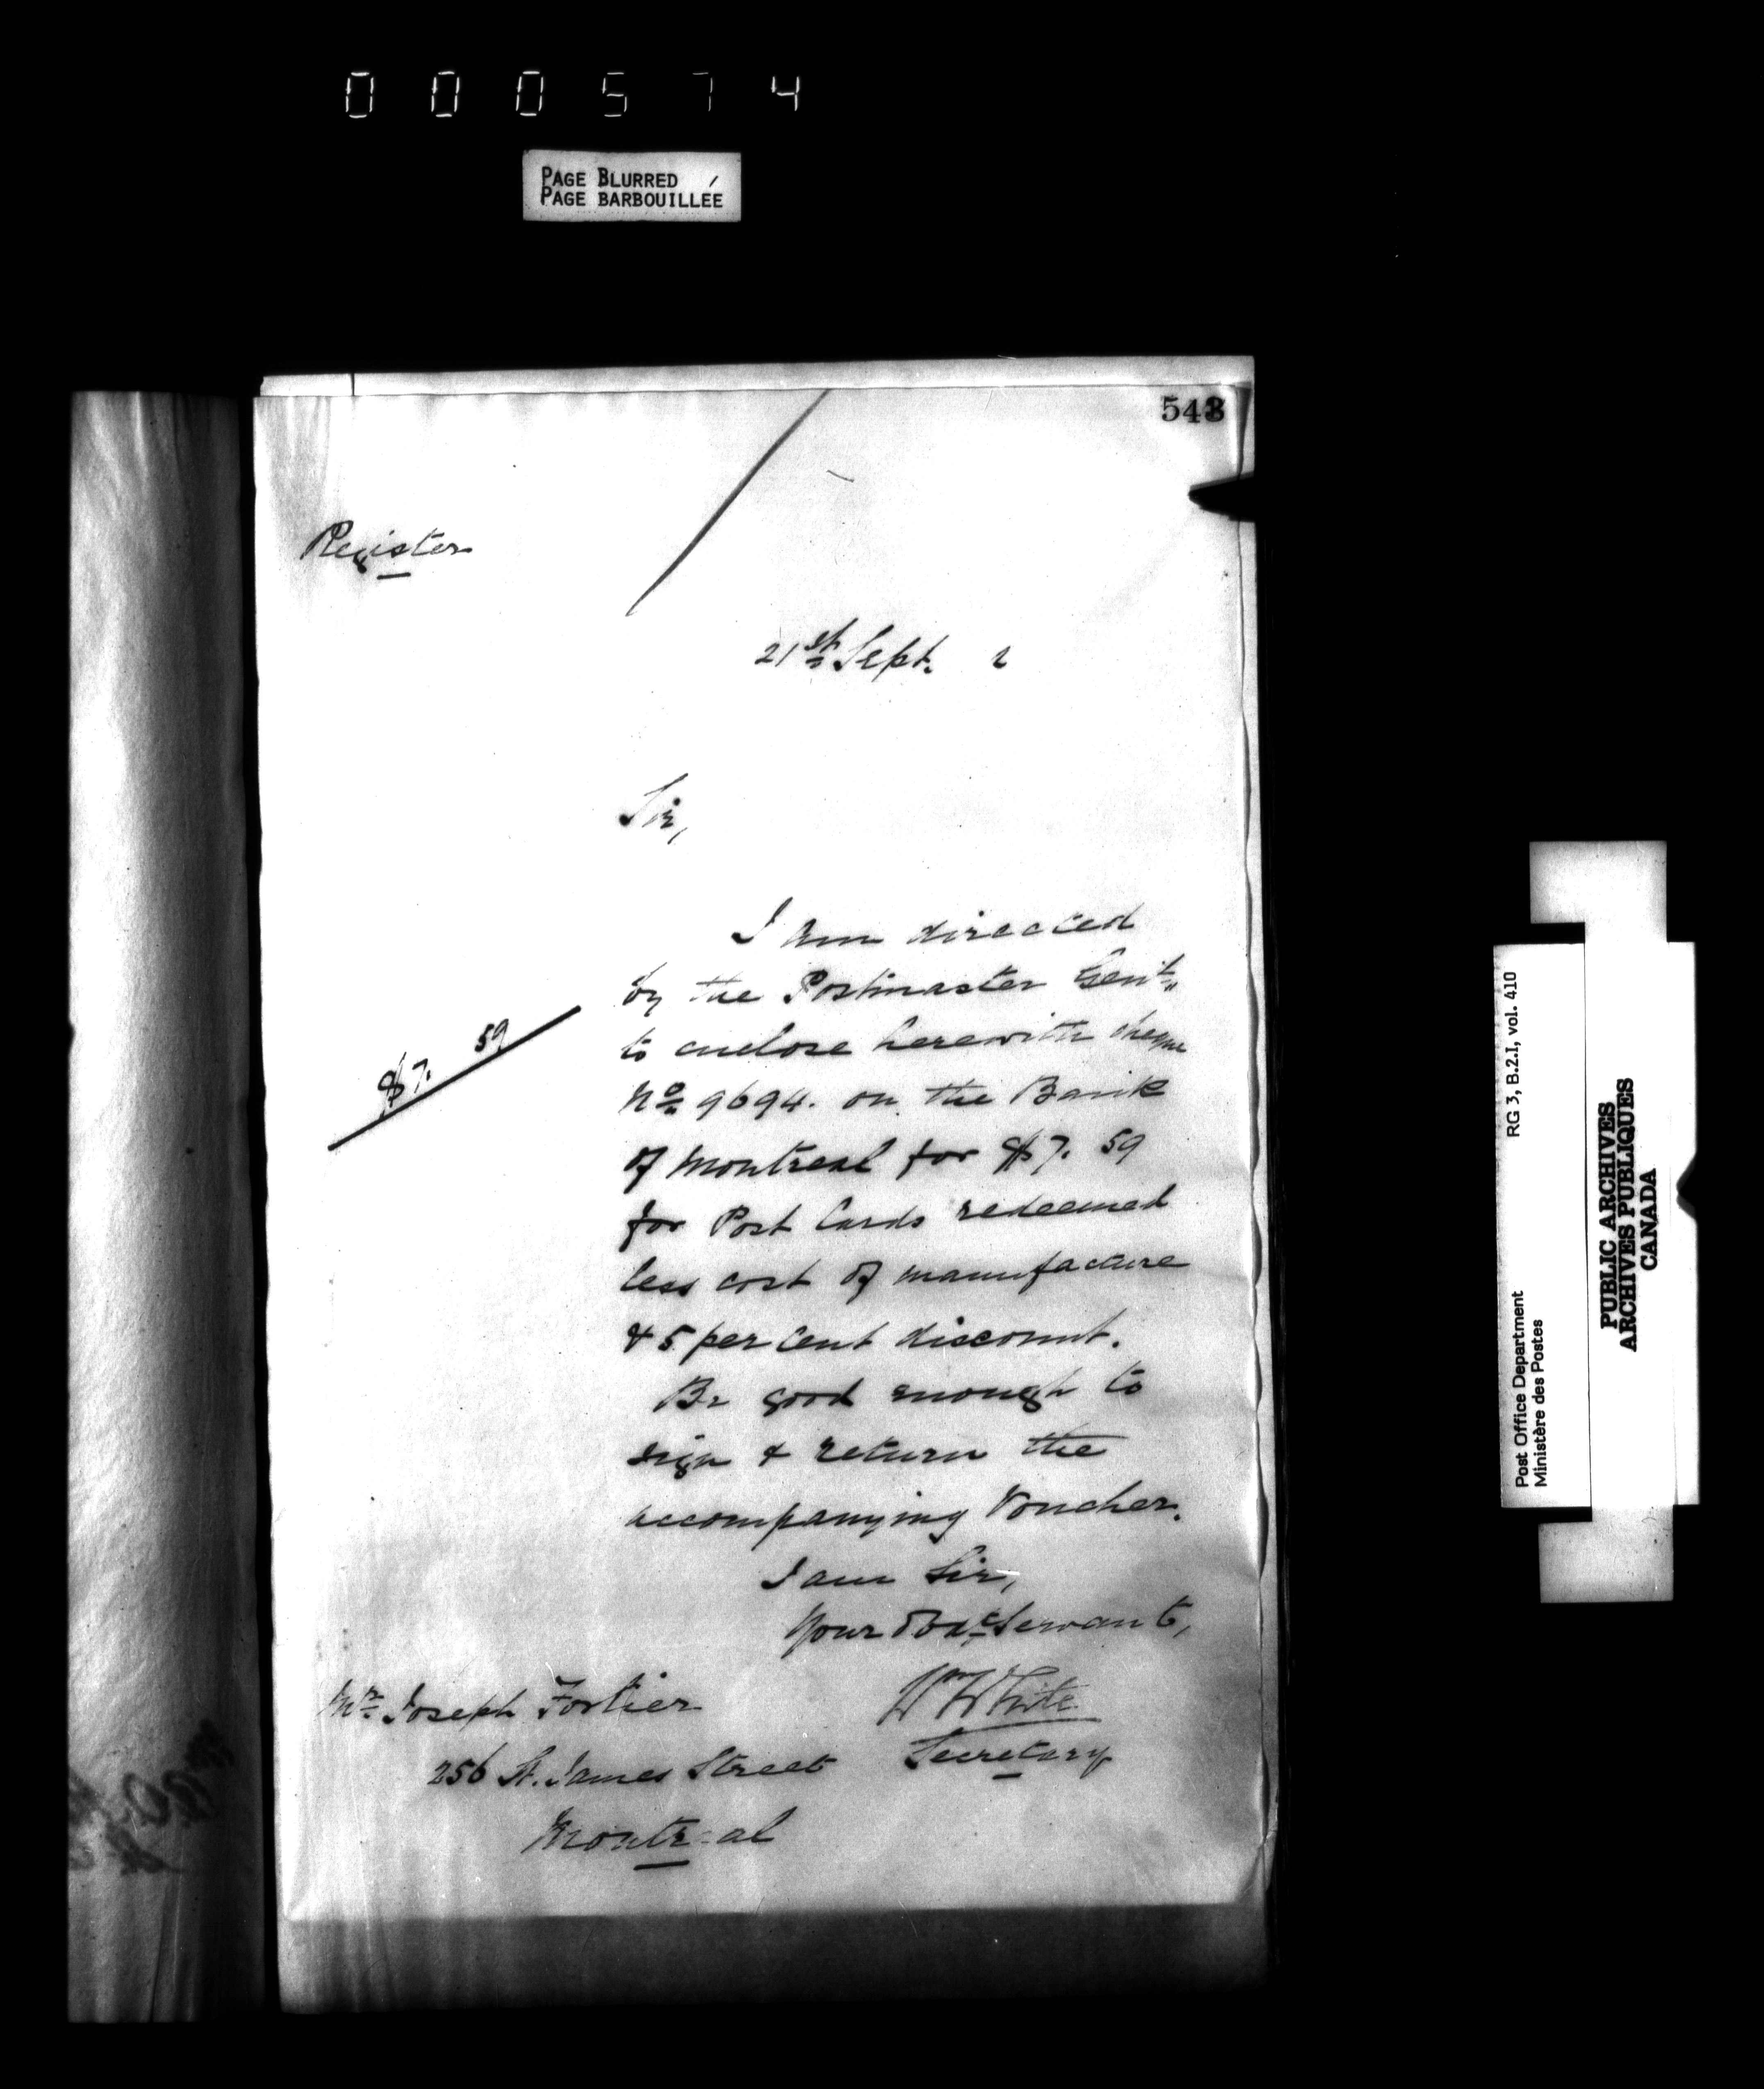 000574
PAGE BLURRED
PAGE BARBOUILLÉE
543
Register
21st Sept. 2
Sir,
I am directed
by the Postmaster Genl.
to enclose herewith cheque
No. 9694. on the Bank
of Montreal for $7. 59
$7. 59
for Post Cards redeemed
less cost of manufacture
& 5 per cent discount.
Be good enough to
sign & return the
accompanying Voucher.
I am Sir,
Your Obdt Servant,
Wm White
Secretary
Mr. Joseph Fortier
256 St. James Street
Montreal
Post Office Department
Ministère des Postes
RG 3, B.2.I, vol. 410
PUBLIC ARCHIVES
ARCHIVES PUBLIQUES
CANADA